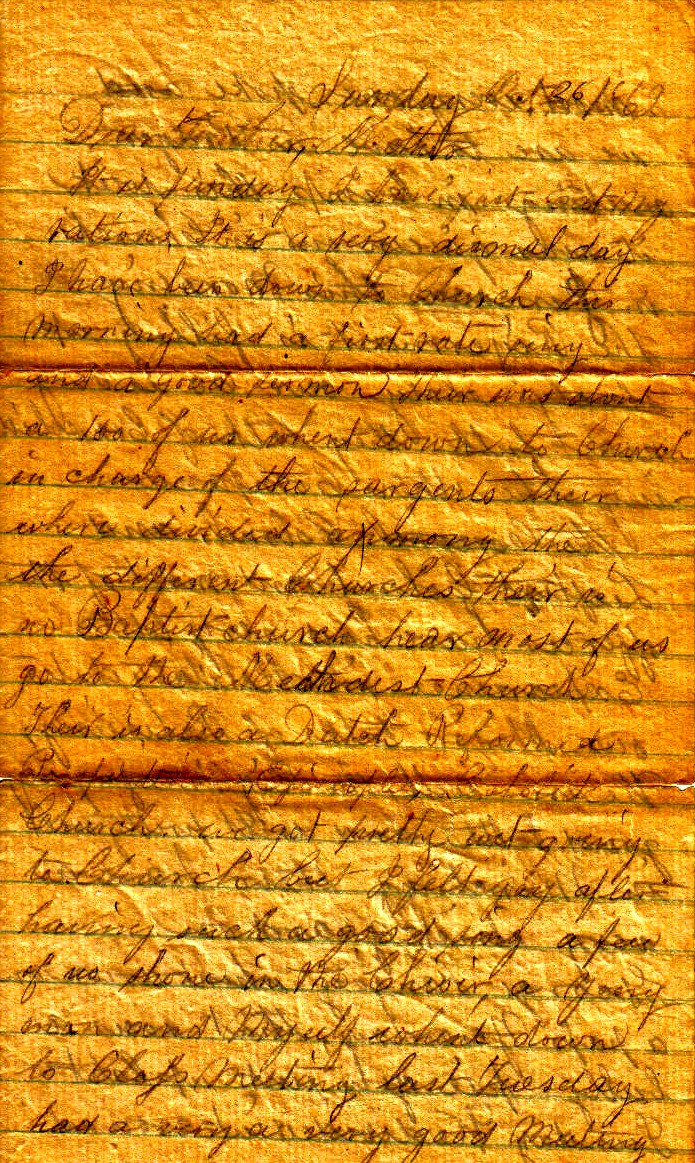 Sunday Oct 26/1862
Dear
It is Sunday I have just
rations, It is a very dismal day
I have been down to Church this
morning had a first rate sing
and a good sermon their was about
a 100 of us whent down to Church
in charge of the sargents their
where divided among the
the different Churches their is
no Baptist church hear most of us
go to the Methodist Church
Their is also a Dutch Reformed
Church we got pretty wet going
to Church but I felt
having such a good sing a few
of us shone in the Choir, a yong
man and Myself whent down
to Class Meeting last Tuesday
had a very a very good Meeting